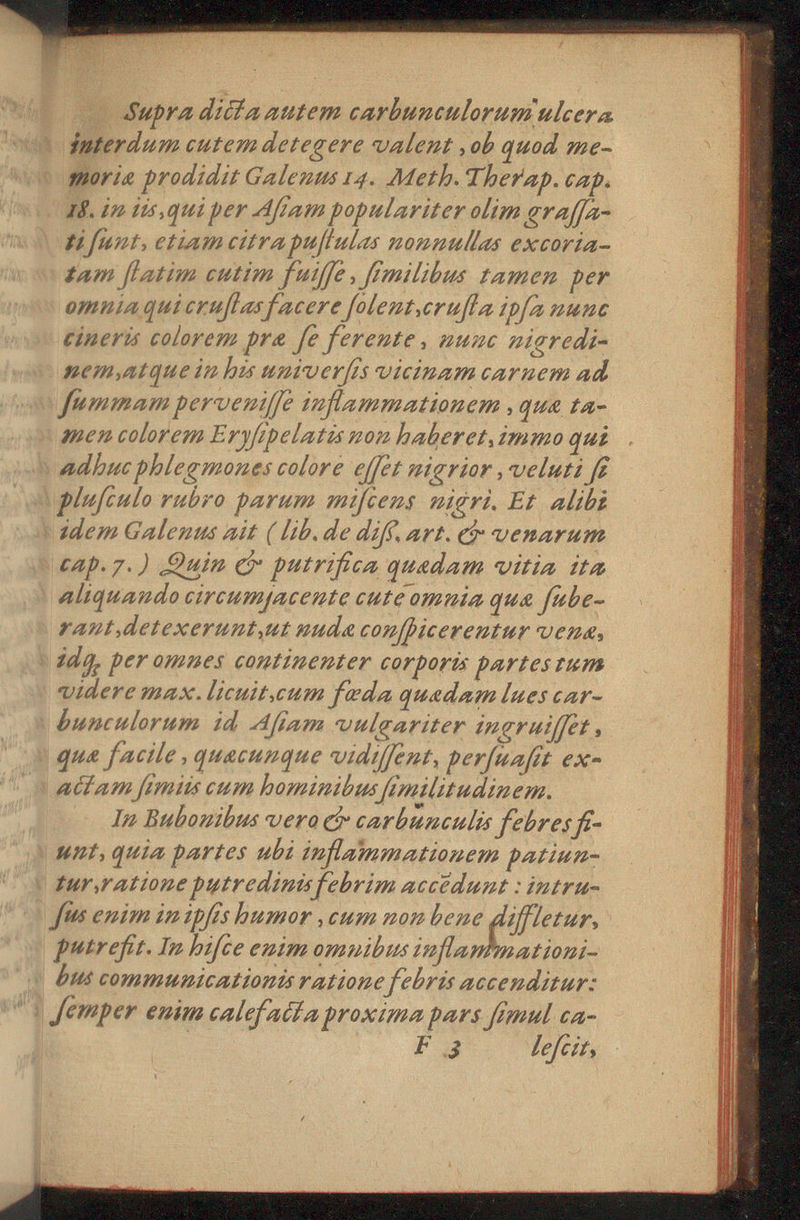 Supra dicta autem carbunculorum ulcera
interdum cutem detegere valent, ob quod me-
moriæ prodidit Galenus 14. Meth. Therap. cap.
18. in iis, qui per Asiam populariter olim grassa-
ti sunt, etiam citra pustulas nonnullas excoria-
tam statim cutim fuisse, similibus tamen per
omnia qui crustas facere solent, crusta ipsa nunc
cineris colorem præ se ferente, nunc nigredi-
nem, atque in his universis vicinam carnem ad
summam pervenisse inflammationem, quæ ta-
men colorem Erysipelatis non haberet, immo qui
adhuc phlegmones colore esset nigrior, veluti si
plusculo rubro parum miscens nigri. Et alibi
idem Galenus ait (lib. de diss. art. & venarum
cap. 7.) Quin & putrifica quædam vitia ita
aliquando circumjacente cute omnia quæ sube-
rant, detexerunt, ut nudæ conspicerentur venæ,
idq; per omnes continenter corporis partes tum
videre max. licuit, cum fœda quædam lues car-
bunculorum id Asiam vulgariter ingruisset,
quæ facile, quæcunque vidissent, persuasit ex-
actam simiis cum hominibus similitudinem.
In Bubonibus vero & carbunculis febres fi-
unt, quia partes ubi inflammationem patiun-
tur, ratione putredinis febrim accedunt: intru-
sus enim in ipsis humor, cum non bene diffletur,
putrefit. In hisce enim omnibus inflammationi-
bus communicationis ratione febris accenditur:
semper enim calefacta proxima pars simul ca-
F 3 lescit,